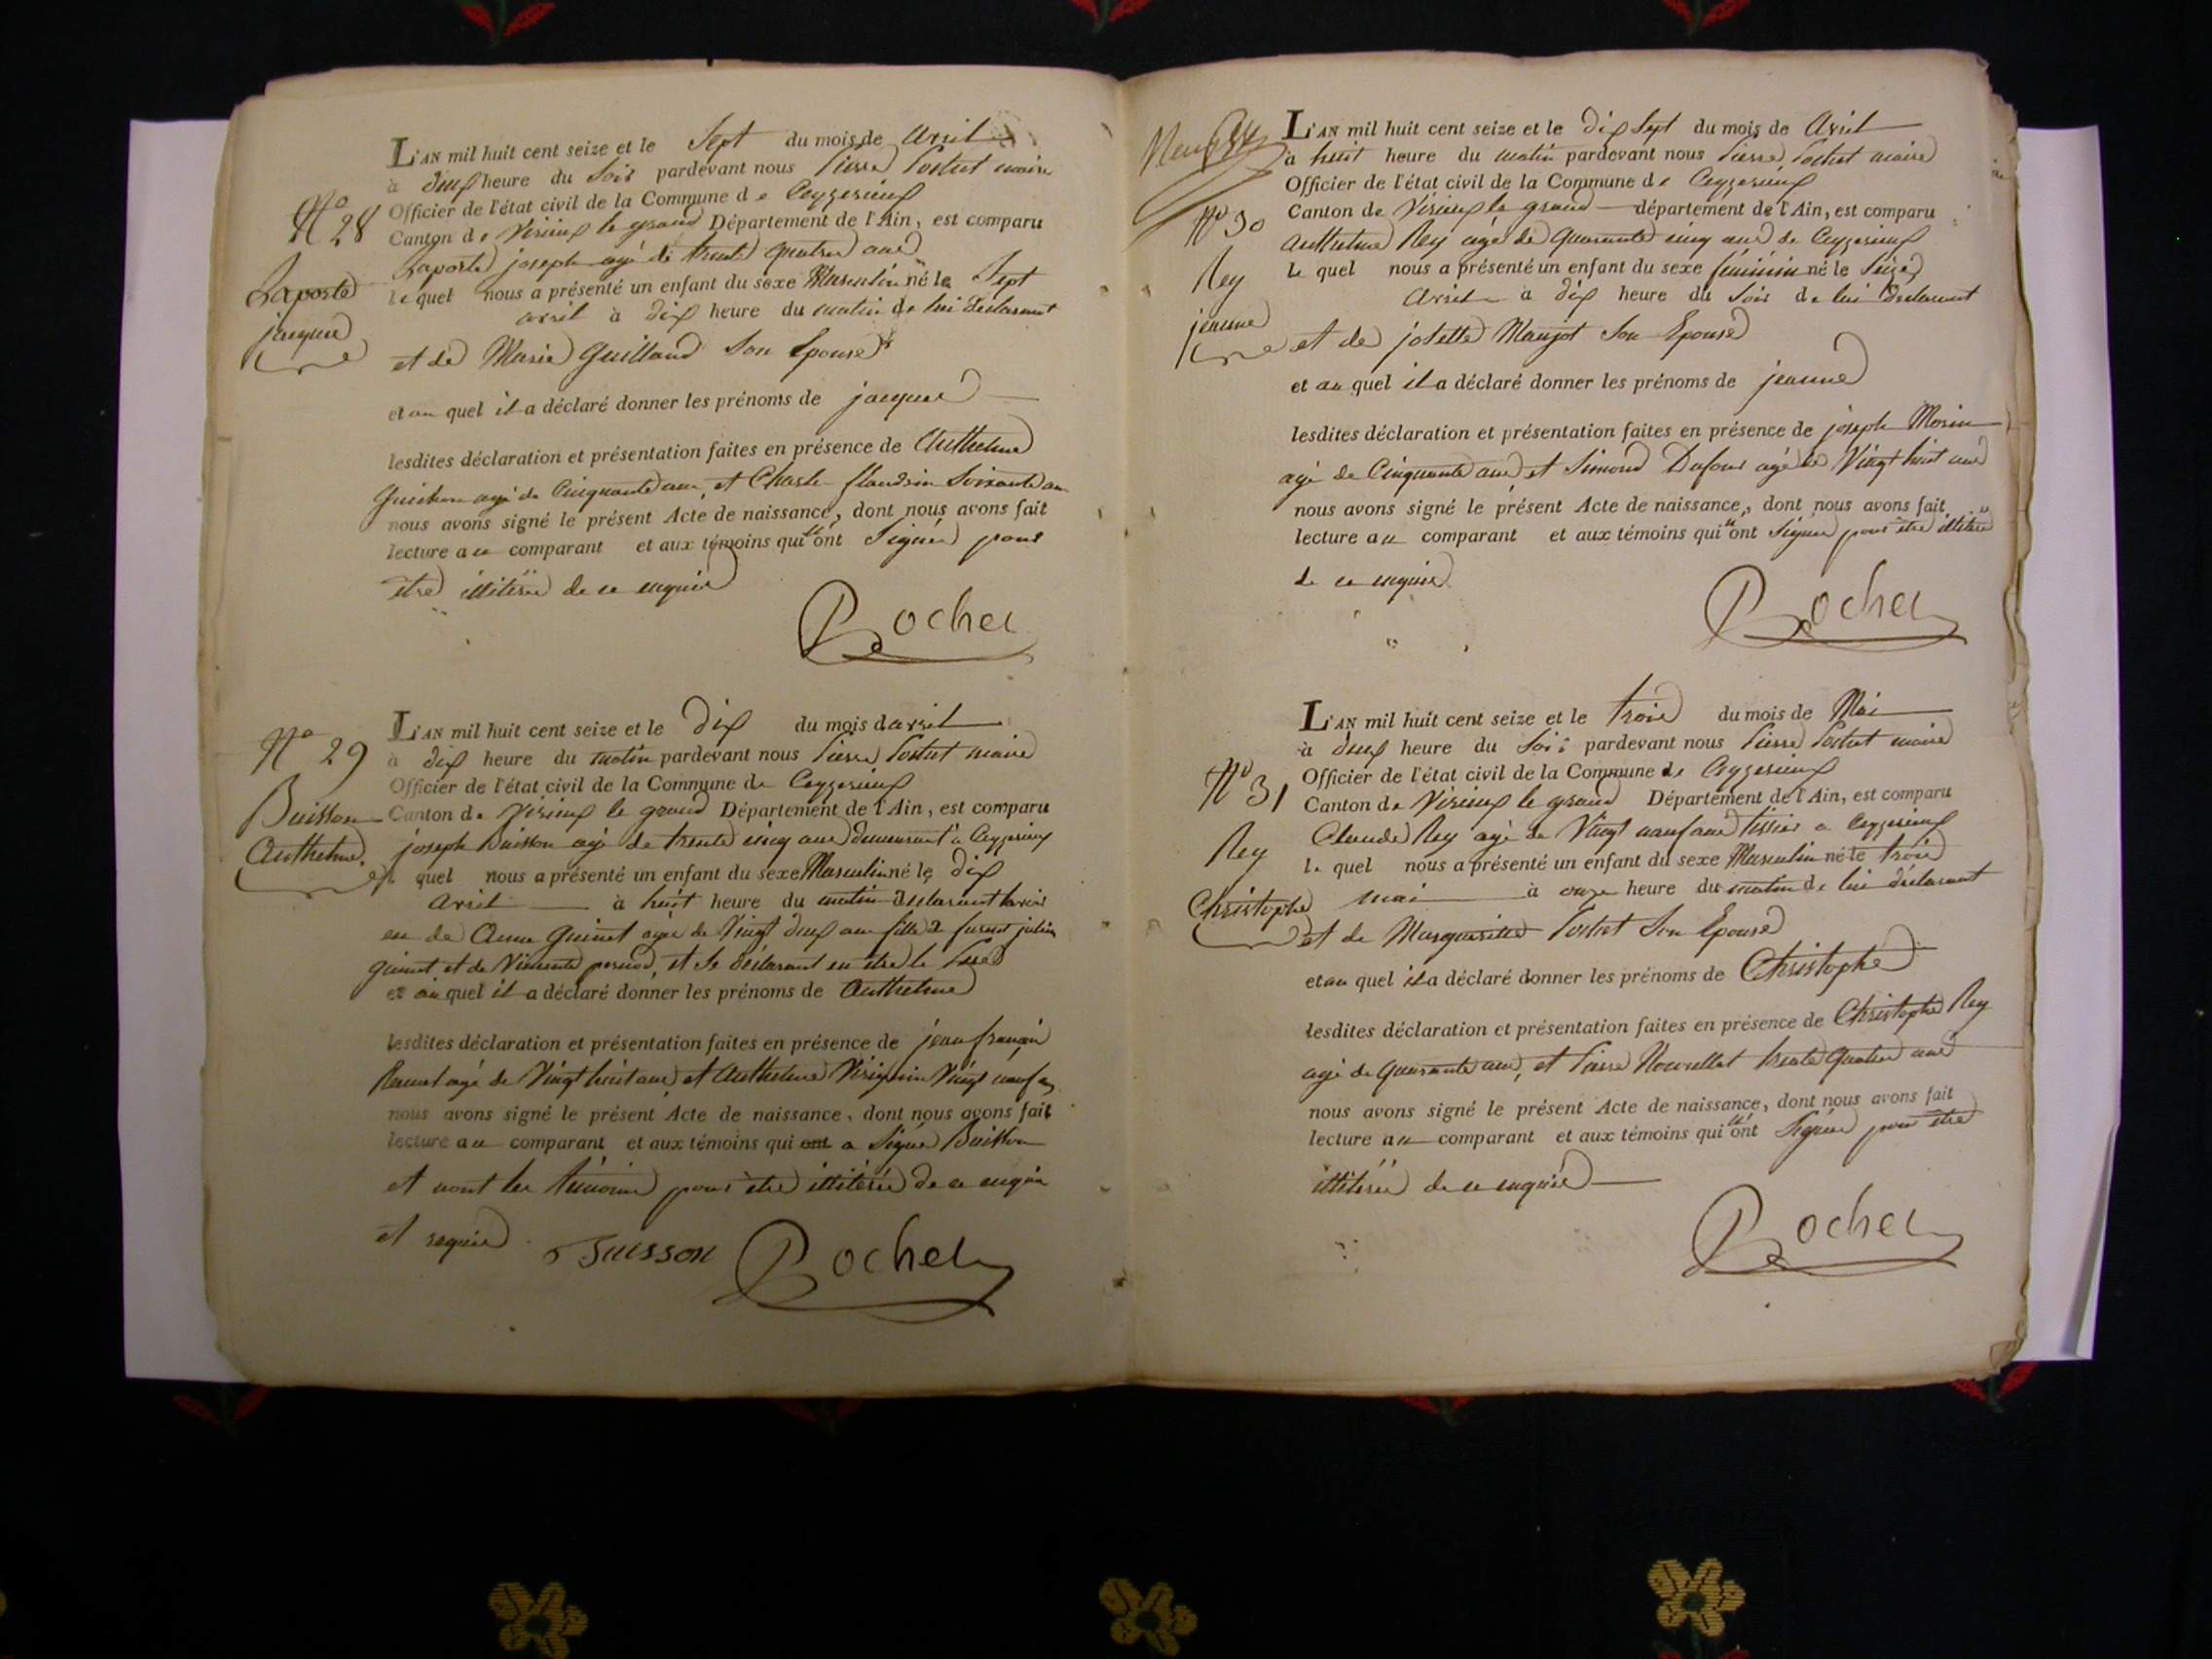 N° 28
Laporte
jacques
L'AN mil huit cent seize et le Sept du mois de Avril
à deux heure du Soir pardevant nous Pierre maire
Officier de l'état civil de la Commune de Ceyzerieux
Canton de Virieux le grand Département de l'Ain, est comparu
Laporte joseph agé de trente quatre ans
lequel nous a présenté un enfant du sexe Masculin né le Sept
avril à dix heure du matin de lui Declarant
et de Marie Guilland Son Epouse
et au quel il a déclaré donner les prénoms de jacques
lesdites déclaration et présentation faites en présence de Anthelme
Guichon agé de Cinquante ans, et Charle flandrin Soixante ans
nous avons signé le présent Acte de naissance, dont nous avons fait
lecture au comparant et aux témoins qui n'ont Signés pour
etre illiterés de ce enquis
Rochex
N° 29
Buisson
Anthelme.
L'AN mil huit cent seize et le Dix du mois davril
à dix heure du matin pardevant nous Pierre maire
Officier de l'état civil de la Commune de Ceyzerieux
Canton de Virieux le grand Département de l'Ain, est comparu
joseph Buisson agé de trente cinq ans demeurant à Ceyzerieux
le quel nous a présenté un enfant du sexe Masculin né le dix
avril à huit heure du matin declarant lavoir
eu de Anne Guinet agée de Vingt deux ans fille à furent julien
guinet et de Vincente, et Se déclarant en etre le Pere
et au quel il a déclaré donner les prénoms de Anthelme
lesdites déclaration et présentation faites en présence de jean françois
agé de Vingt huit ans, et Anthelme Virignin Vingt neuf ans
nous avons signé le présent Acte de naissance, dont nous avons fait
lecture au comparant et aux témoins qui ont a Signé Buisson
et nont les témoins pour être illiterés de ce enquis
et requis
Buisson Rochex
N° 30
Rey
jeanne
L'AN mil huit cent seize et le dix Sept du mois de Avril
à huit heure du matin pardevant nous Pierre maire
Officier de l'état civil de la Commune de Ceyzerieux
Canton de Virieux le grand département de l'Ain, est comparu
Anthelme Rey agé de Quarante cinq ans de Ceyzerieux
le quel nous a présenté un enfant du sexe féminin né le Seize
Avril à dix heure du Soir de lui Declarant
et de josette Maujot Son Epouse
et au quel il a déclaré donner les prénoms de jeanne
lesdites déclaration et présentation faites en présence de joseph Morin
agé de Cinquante ans et Simond Dufour agé de Vingt huit ans
nous avons signé le présent Acte de naissance, dont nous avons fait
lecture au comparant et aux témoins qui n'ont Signés pour être illiterés
de ce enquis
Rochex
N° 31
Rey
Christophe
L'AN mil huit cent seize et le trois du mois de Mai
à deux heure du Soir pardevant nous Pierre maire
Officier de l'état civil de la Commune de Ceyzerieux
Canton de Virieux le grand Département de l'Ain, est comparu
Claude Rey agé de Vingt neuf ans tissier à Ceyzerieux
le quel nous a présenté un enfant du sexe Masculin né le trois
mai à onze heure du matin de lui déclarant
et de Marguerite Son Epouse
et au quel il a déclaré donner les prénoms de Christophe
lesdites déclaration et présentation faites en présence de Christophe Rey
agé de Quarante ans, et Pierre trente quatre ans
nous avons signé le présent Acte de naissance, dont nous avons fait
lecture au comparant et aux témoins qui n'ont Signés pour etre
illiterés de ce enquis
Rochex